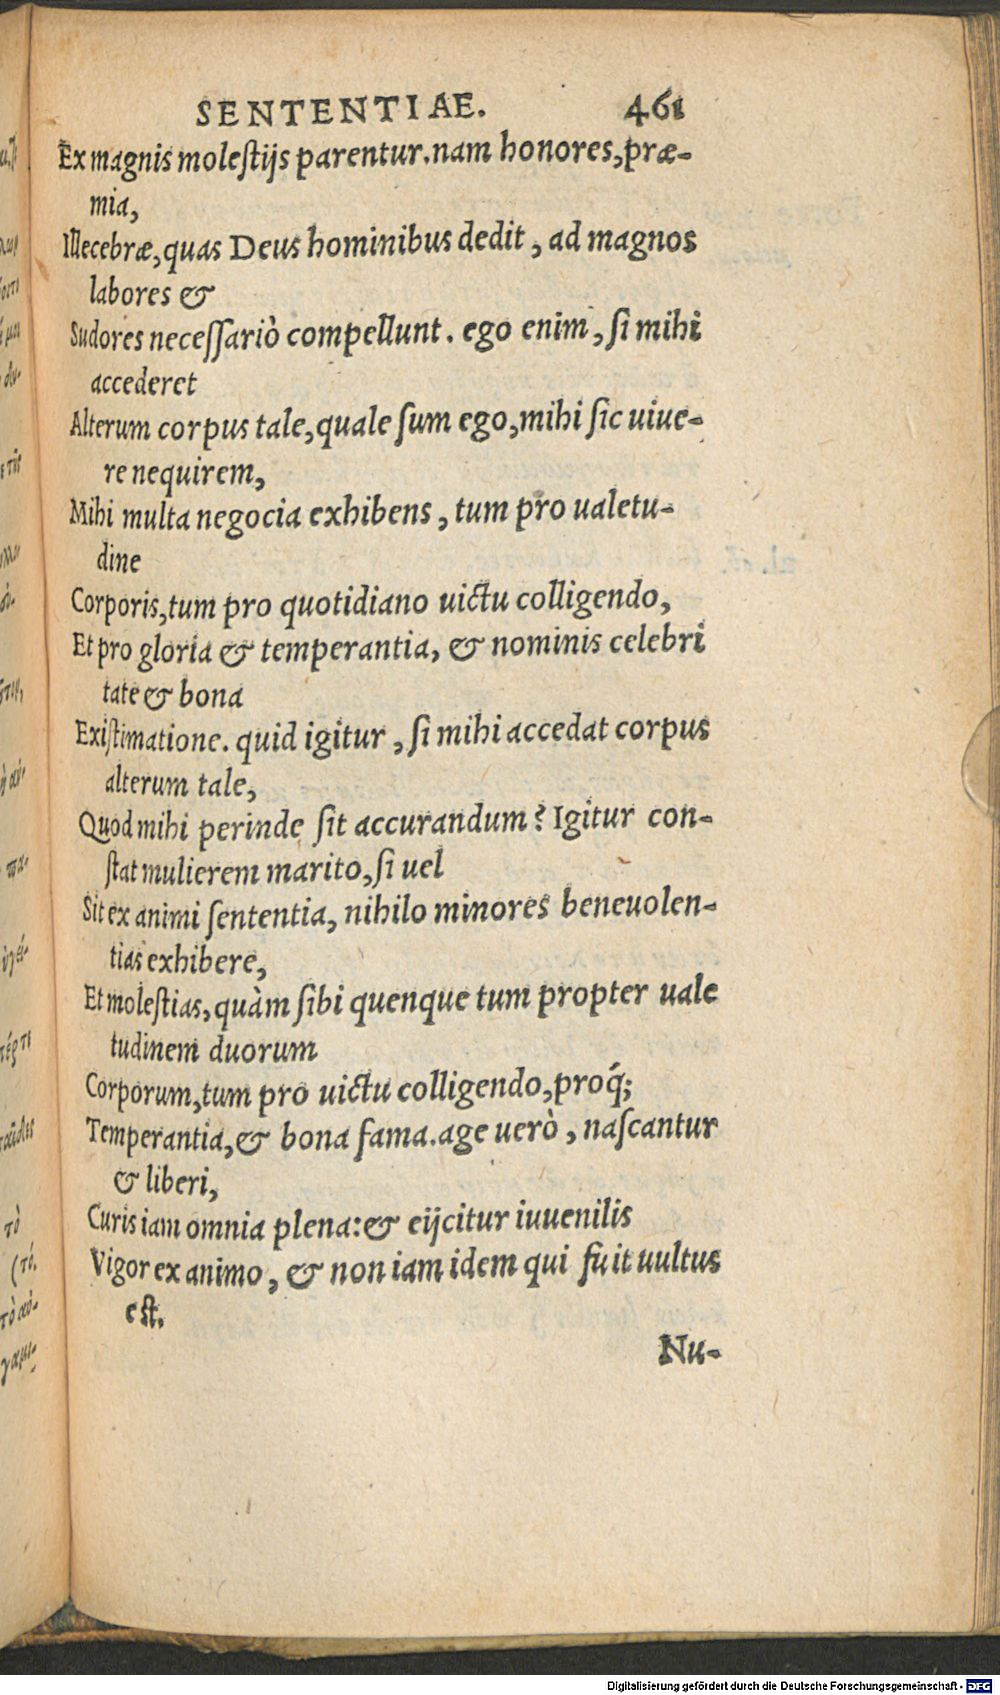 SENTENTIAE. 461
Ex magnis molestijs parentur. nam honores, præ-
mia,
Illecebræ, quas Deus hominibus dedit, ad magnos
labores &
Sudores necessariò compellunt. ego enim, si mihi
accederet
Alterum corpus tale, quale sum ego, mihi sic uiue-
re nequirem,
Mihi multa negocia exhibens, tum pro ualetu-
dine
Corporis, tum pro quotidiano uictu colligendo,
Et pro gloria & temperantia, & nominis celebri
tate & bona
Existimatione. quid igitur, si mihi accedat corpus
alterum tale,
Quod mihi perinde sit accurandum? Igitur con-
stat mulierem marito, si uel
Sit ex animi sententia, nihilo minores beneuolen-
tias exhibere,
Et molestias, quàm sibi quenque tum propter uale
tudinem duorum
Corporum, tum pro uictu colligendo, proq́;
Temperantia, & bona fama. age uerò, nascantur
& liberi,
Curis iam omnia plena: & eijcitur iuuenilis
Vigor ex animo, & non iam idem qui fuit uultus
est.
Nu-
Digitalisierung gefördert durch die Deutsche Forschungsgemeinschaft - DFG